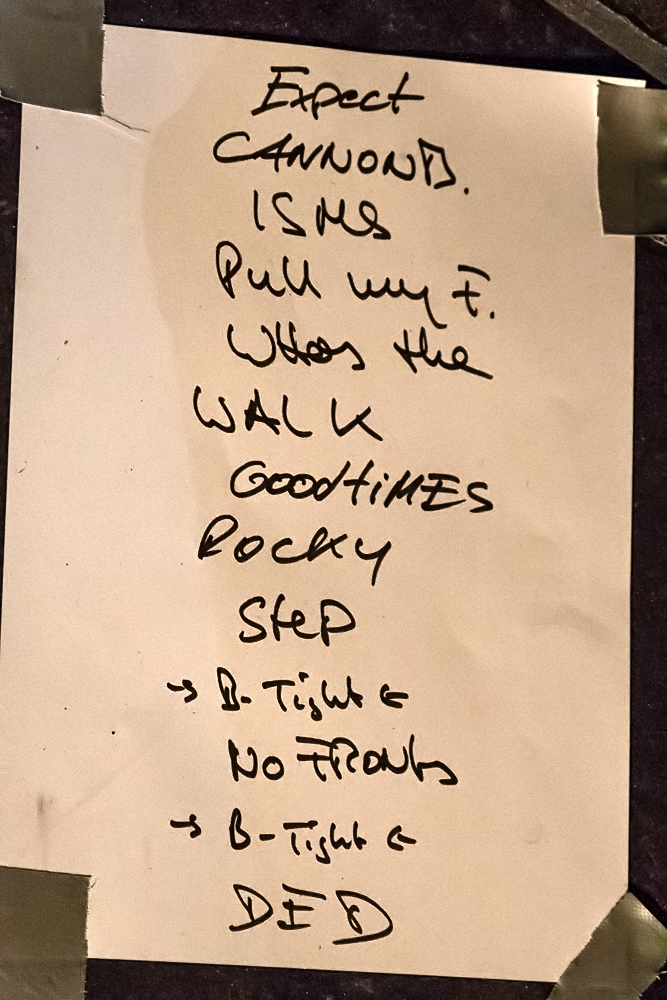 Expect
CANNONB.
ISMS
Pull my F.
WHOs the
WALK
GOODtiMES
ROCKY
SteP
→ B-Tight ←
NO FRONts
→ B-Tight ←
DFD